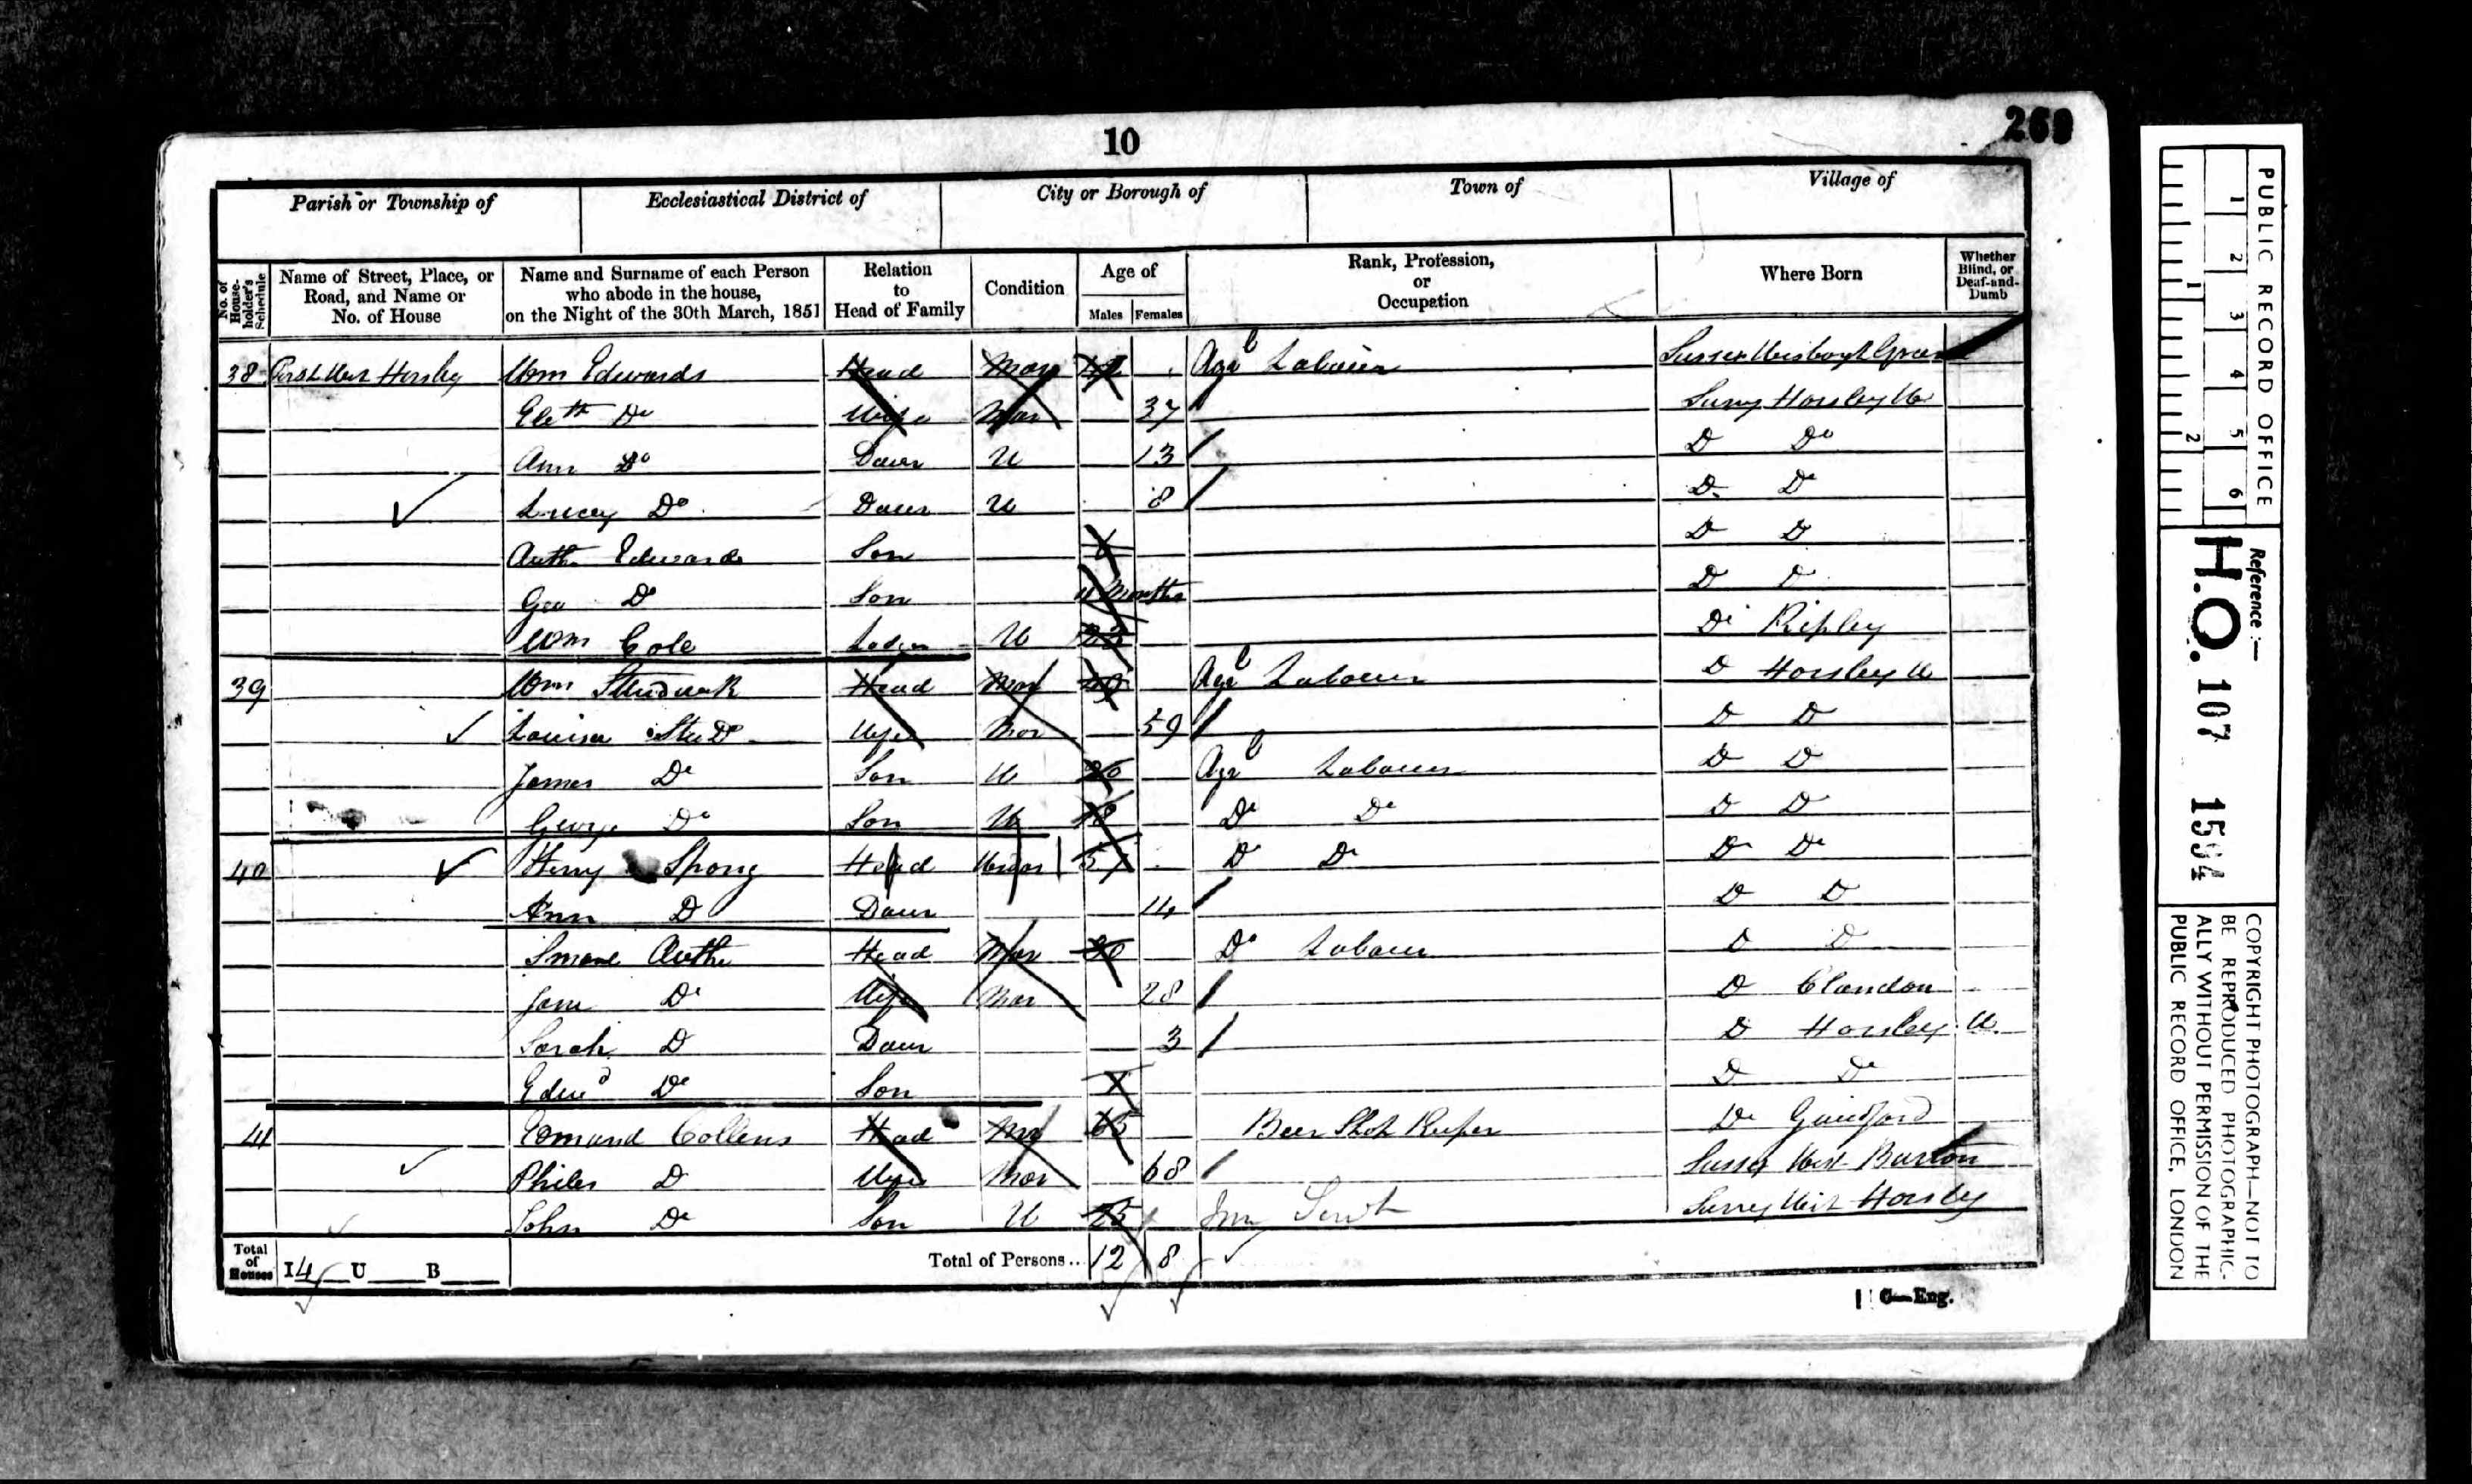 10
269
Parish or Township of Ecclesiastical District of City or Borough of Town of Village of
No. of House-holder's Schedule
Name of Street, Place, or Road, and Name or No. of House
Name and Surname of each Person who abode in the house, on the Night of the 30th March, 1851
Relation to Head of Family
Condition
Age of
Males Females
Rank, Profession, or Occupation
Where Born
Whether Blind, or Deaf-and-Dumb
38 West Horsley Wm Edwards Head Mar Agl Labourer Sussex
Elth Do Wife Mar 37 Surry Horsley W
Ann Do Daur U 13 D Do
Lucey Do Daur U 8 D D
Arthr Edwards Son D D
Geo Do Son 11 Months D D
Wm Cole Lodger U Do Ripley
39 Wm Head Mar Agl Labourer D Horsley W
Louisa Stu Do Wife Mar 59 D D
James Do Son U 20 Agl Labourer D D
George Do Son U 18 Do Do D D
40 Henry Spong Head 57 D Do D Do
Ann D Daur 14 D D
Smave Arthr Head Mar 30 Do Labourer D D
Jane Do Wife Mar 28 D Clandon
Sarah D Daur 3 D Horsley W
Edwd Do Son D Do
41 Edmund Collens Head Mar 65 Beer Shop Keeper Do Guildford
D Wife Mar 68 Sussex West Burton
John Do Son U 25 Surrey West Horsley
Total of Houses I 4 U B Total of Persons.. 12 8
C—Eng.
PUBLIC RECORD OFFICE
1 2 3 4 5 6
1 2
Reference:—
H.O. 107 1594
COPYRIGHT PHOTOGRAPH—NOT TO BE REPRODUCED PHOTOGRAPHIC-ALLY WITHOUT PERMISSION OF THE PUBLIC RECORD OFFICE, LONDON